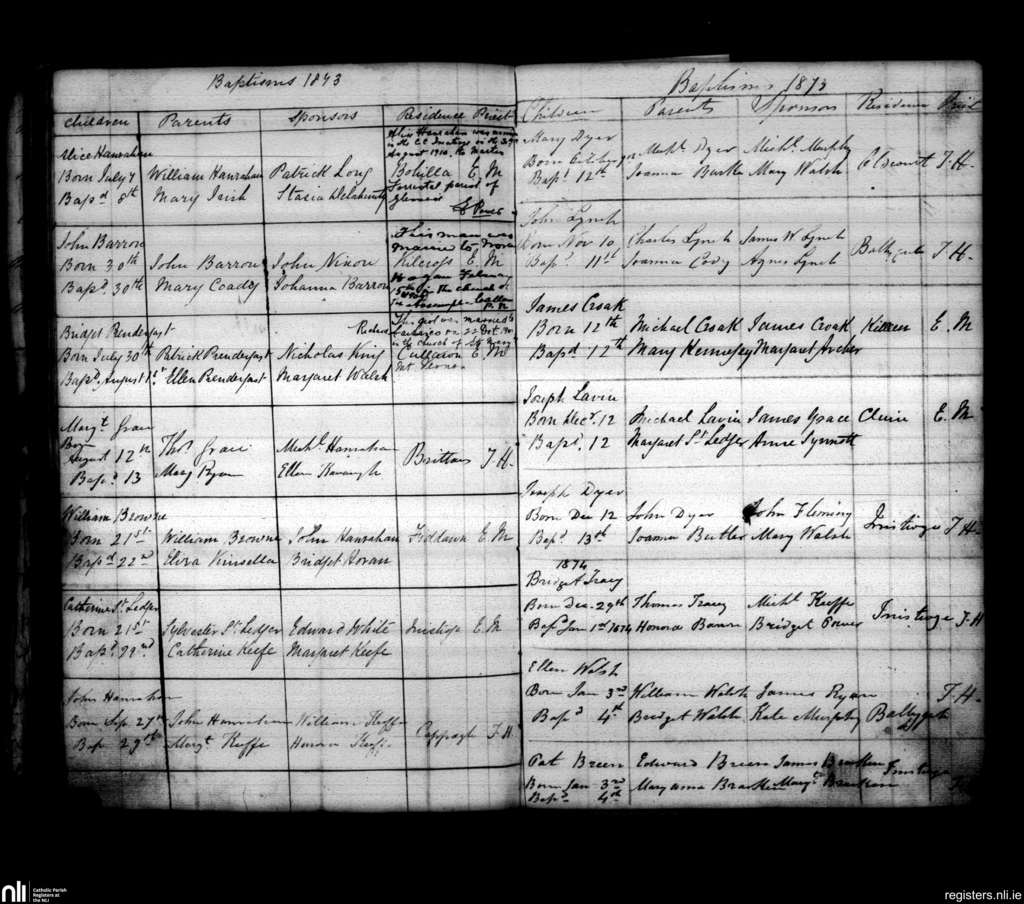 Baptisms 1873
Children Parents Sponsors Residence Priest
Alice Hanrahan
Born July 7 William Hanrahan Patrick Long Bohilla E. M
Bapd 8th Mary Irish Stasia Delahunty
Alice Hanrahan was
in the C.C. in the
August 1910, the Martin
parish of
Glenmore
John Barron
Born 30th John Barron John Nixon Kilcross E. M
Bapd 30th Mary Coady Johanna Barron
This man was
married to Nora
Hogan February
in the church of
the
Bridget Prendergast
Born July 30th Patrick Prendergast Nicholas King Cullaun E. M
Bapd August 1st Ellen Prendergast Margaret Walsh
This girl was married to
on 22 Oct
in the church of St Mary's
Mt Vernon
Margt Grace
Born
August 12th Thos Grace Michl Hanrahan Brittas T. H.
Bapd 13 Mary Ryan Ellen Kavangh
William Browne
Born 21st William Browne John Hanrahan Fiddaun E. M
Bapd 22nd Eliza Kinsella Bridget Horan
Catherine St Ledger
Born 21st Sylvester St Ledger Edward White Inistige E. M
Bapd 22nd Catherine Keefe Margaret Keefe
John Hanrahan
Born Sep 27th John Hanrahan William Keffe Cappagh T. H
Bap 29th Margt Keffe Honora Keffe
Baptisms 1873
Children Parents Sponsors Residence Priest
Mary Dyer
Born Michl Dyer Michl Murphy T. H.
Bapd 12th Joanna Burke Mary Walsh
John Lynch
Born Nov 10 Charles Lynch James W Lynch T. H.
Bapd 11th Joanna Cody Agnes Lynch
James Croak
Born 12th Michael Croak James Croak E. M
Bapd 12th Mary Hennesey Margaret Archer
Joseph Lavin
Born Decr 12 Michael Lavin James Grace Cluin E. M
Bapd 12 Margaret St Ledger Anne Synnott
Joseph Dyer
Born Dec 12 John Dyer John Fleming Innistioge T. H.
Bapd 13th Joanna Butler Mary Walsh
1874
Bridget Tracy
Born Dec. 29th Thomas Tracey Michl Keeffe Innistioge T. H
Bapd Jan 1st 1874 Honora Bawn Bridget Power
Ellen Walsh
Born Jan 3rd William Walsh James Ryan T. H.
Bapd 4th Bridget Walsh Kate Murphy Ballygub
Pat Breen Edward Breen James Bracken Innistioge
Born Jan 3rd Maryanna Bracken Margt Bracken
Bapd 4th
nli
Catholic Parish
Registers at
the NLI
registers.nli.ie